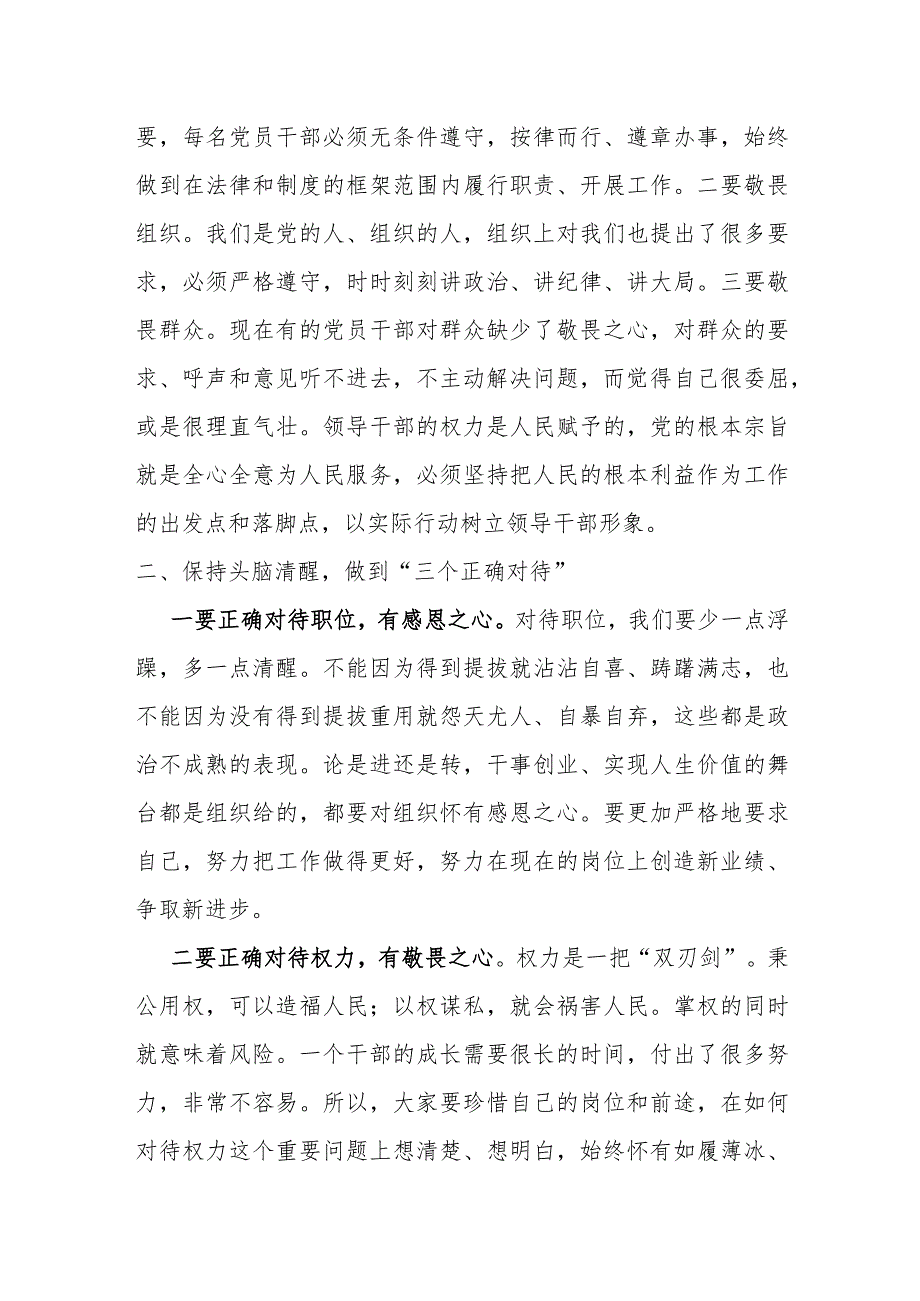 要，每名党员干部必须无条件遵守，按律而行、遵章办事，始终
做到在法律和制度的框架范围内履行职责、开展工作。二要敬畏
组织。我们是党的人、组织的人，组织上对我们也提出了很多要
求，必须严格遵守，时时刻刻讲政治、讲纪律、讲大局。三要敬
畏群众。现在有的党员干部对群众缺少了敬畏之心，对群众的要
求、呼声和意见听不进去，不主动解决问题，而觉得自己很委屈，
或是很理直气壮。领导干部的权力是人民赋予的，党的根本宗旨
就是全心全意为人民服务，必须坚持把人民的根本利益作为工作
的出发点和落脚点，以实际行动树立领导干部形象。
二、保持头脑清醒，做到“三个正确对待”
一要正确对待职位，有感恩之心。对待职位，我们要少一点浮
躁，多一点清醒。不能因为得到提拔就沾沾自喜、踌躇满志，也
不能因为没有得到提拔重用就怨天尤人、自暴自弃，这些都是政
治不成熟的表现。论是进还是转，干事创业、实现人生价值的舞
台都是组织给的，都要对组织怀有感恩之心。要更加严格地要求
自己，努力把工作做得更好，努力在现在的岗位上创造新业绩、
争取新进步。
二要正确对待权力，有敬畏之心。权力是一把“双刃剑”。秉
公用权，可以造福人民；以权谋私，就会祸害人民。掌权的同时
就意味着风险。一个干部的成长需要很长的时间，付出了很多努
力，非常不容易。所以，大家要珍惜自己的岗位和前途，在如何
对待权力这个重要问题上想清楚、想明白，始终怀有如履薄冰、